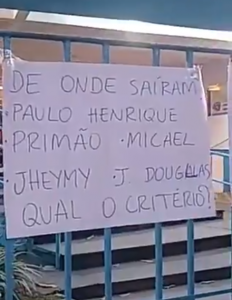 DE ONDE SAÍRAM
·PAULO HENRIQUE
·PRIMÃO ·MICAEL
·JHEYMY ·J. DOUGALAS
QUAL O CRITÉRIO?